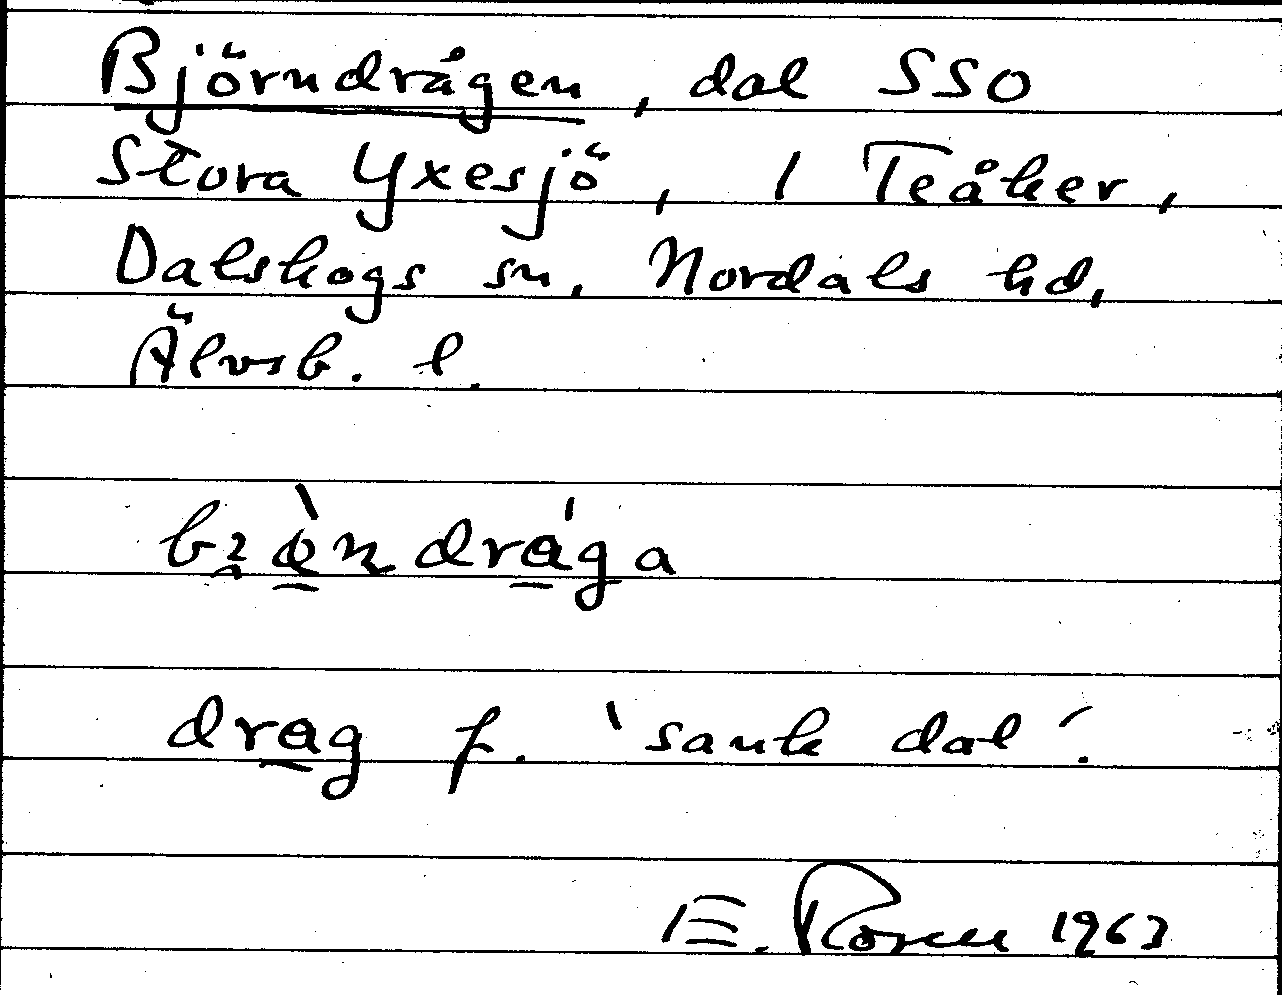 Björndrågen, dal SSO
Stora Yxesjö, 1 Teåker,
Dalskogs sn, Nordals hd,
Älvsb. l.
drag f. 'sank dal'.
E. Rosell 1963